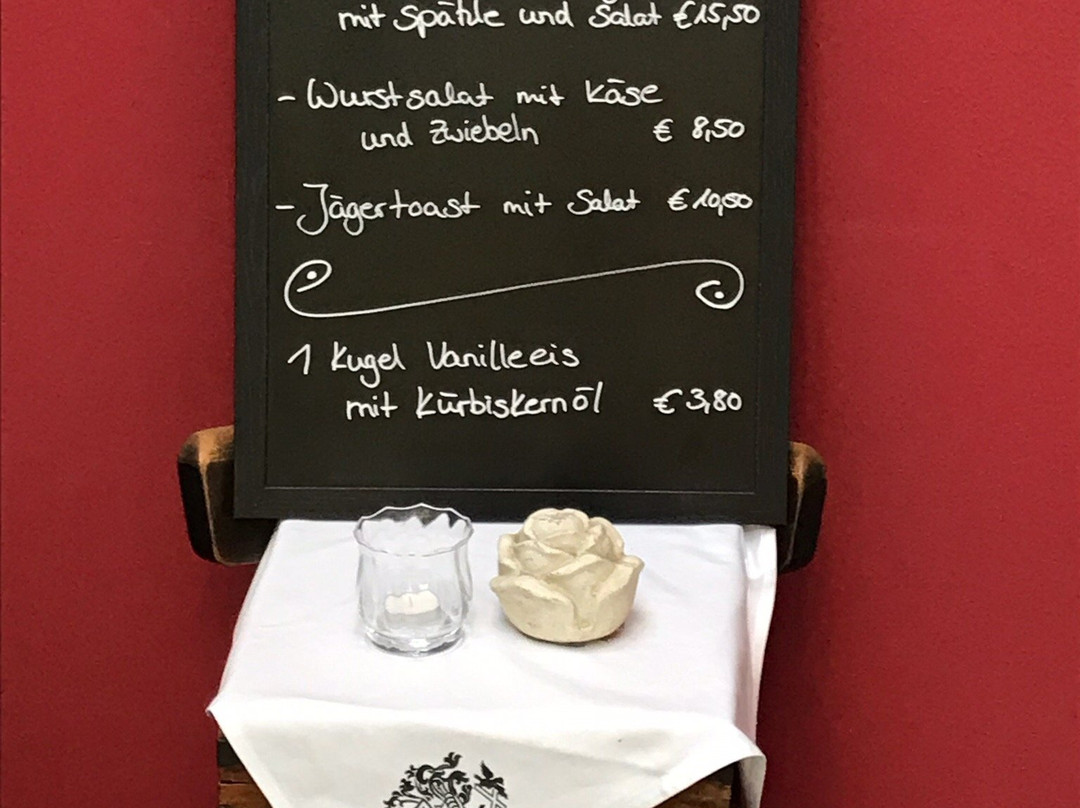 mit Spätzle und Salat €15,50
- Wurstsalat mit Käse
und Zwiebeln € 8,50
- Jägertoast mit Salat €10,50
1 Kugel Vanilleeis
mit Kürbiskernöl €3,80